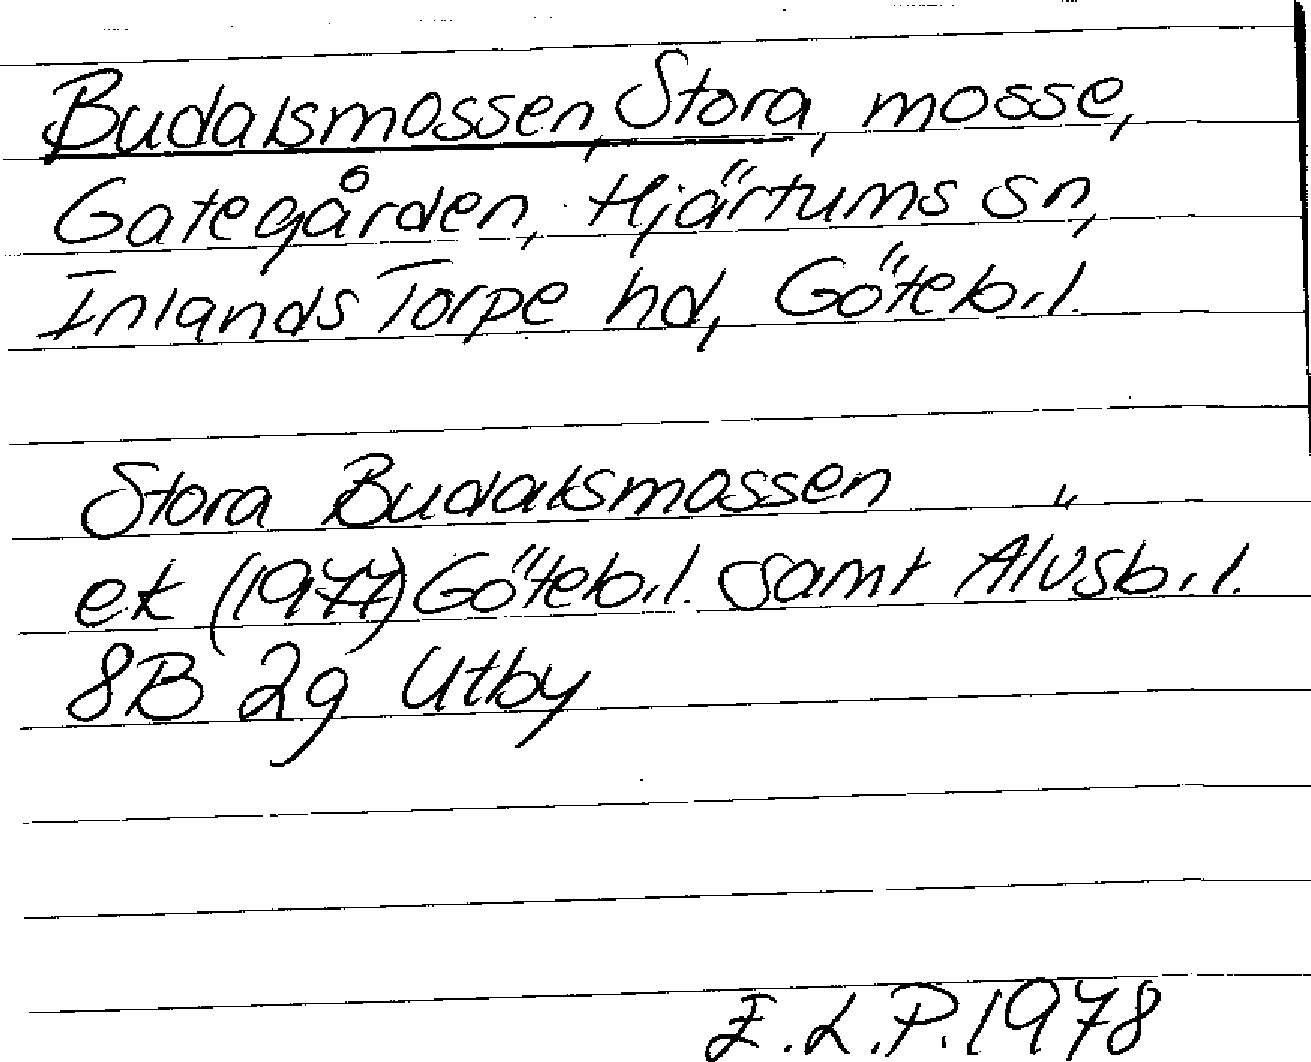 Budalsmossen, Stora, mosse,
Gategården, Hjärtums sn,
Inlands Torpe hd, Göteb.l.
Stora Budalsmossen
ek (1977) Göteb.l. samt Älvsb.l.
8B 2g Utby
E.L.P. 1978